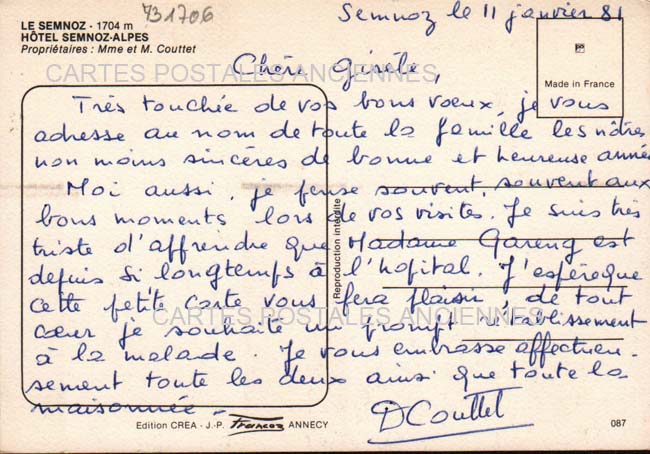 731706
LE SEMNOZ - 1704 m
HÔTEL SEMNOZ-ALPES
Propriétaires : Mme et M. Couttet
Semnoz le 11 janvier 81
CARTES POSTALES ANCIENNES
Made in France
Chère Gisèle,
Très touchée de vos bons vœux, je vous
adresse au nom de toute la famille les nôtres
non moins sincères de bonne et heureuse année
Moi aussi, je pense souvent, souvent aux
bons moments lors de vos visites. Je suis très
triste d'apprendre que Madame Gareng est
depuis si longtemps à l'hôpital. J'espère que
cette petite carte vous fera plaisir, de tout
CARTES POSTALES ANCIENNES
cœur je souhaite un prompt rétablissement
à la malade. Je vous embrasse affectueu-
sement toute les deux ainsi que toute la
maisonnée -
D Couttet
Reproduction interdite
Edition CREA - J.-P. Francoz ANNECY
087